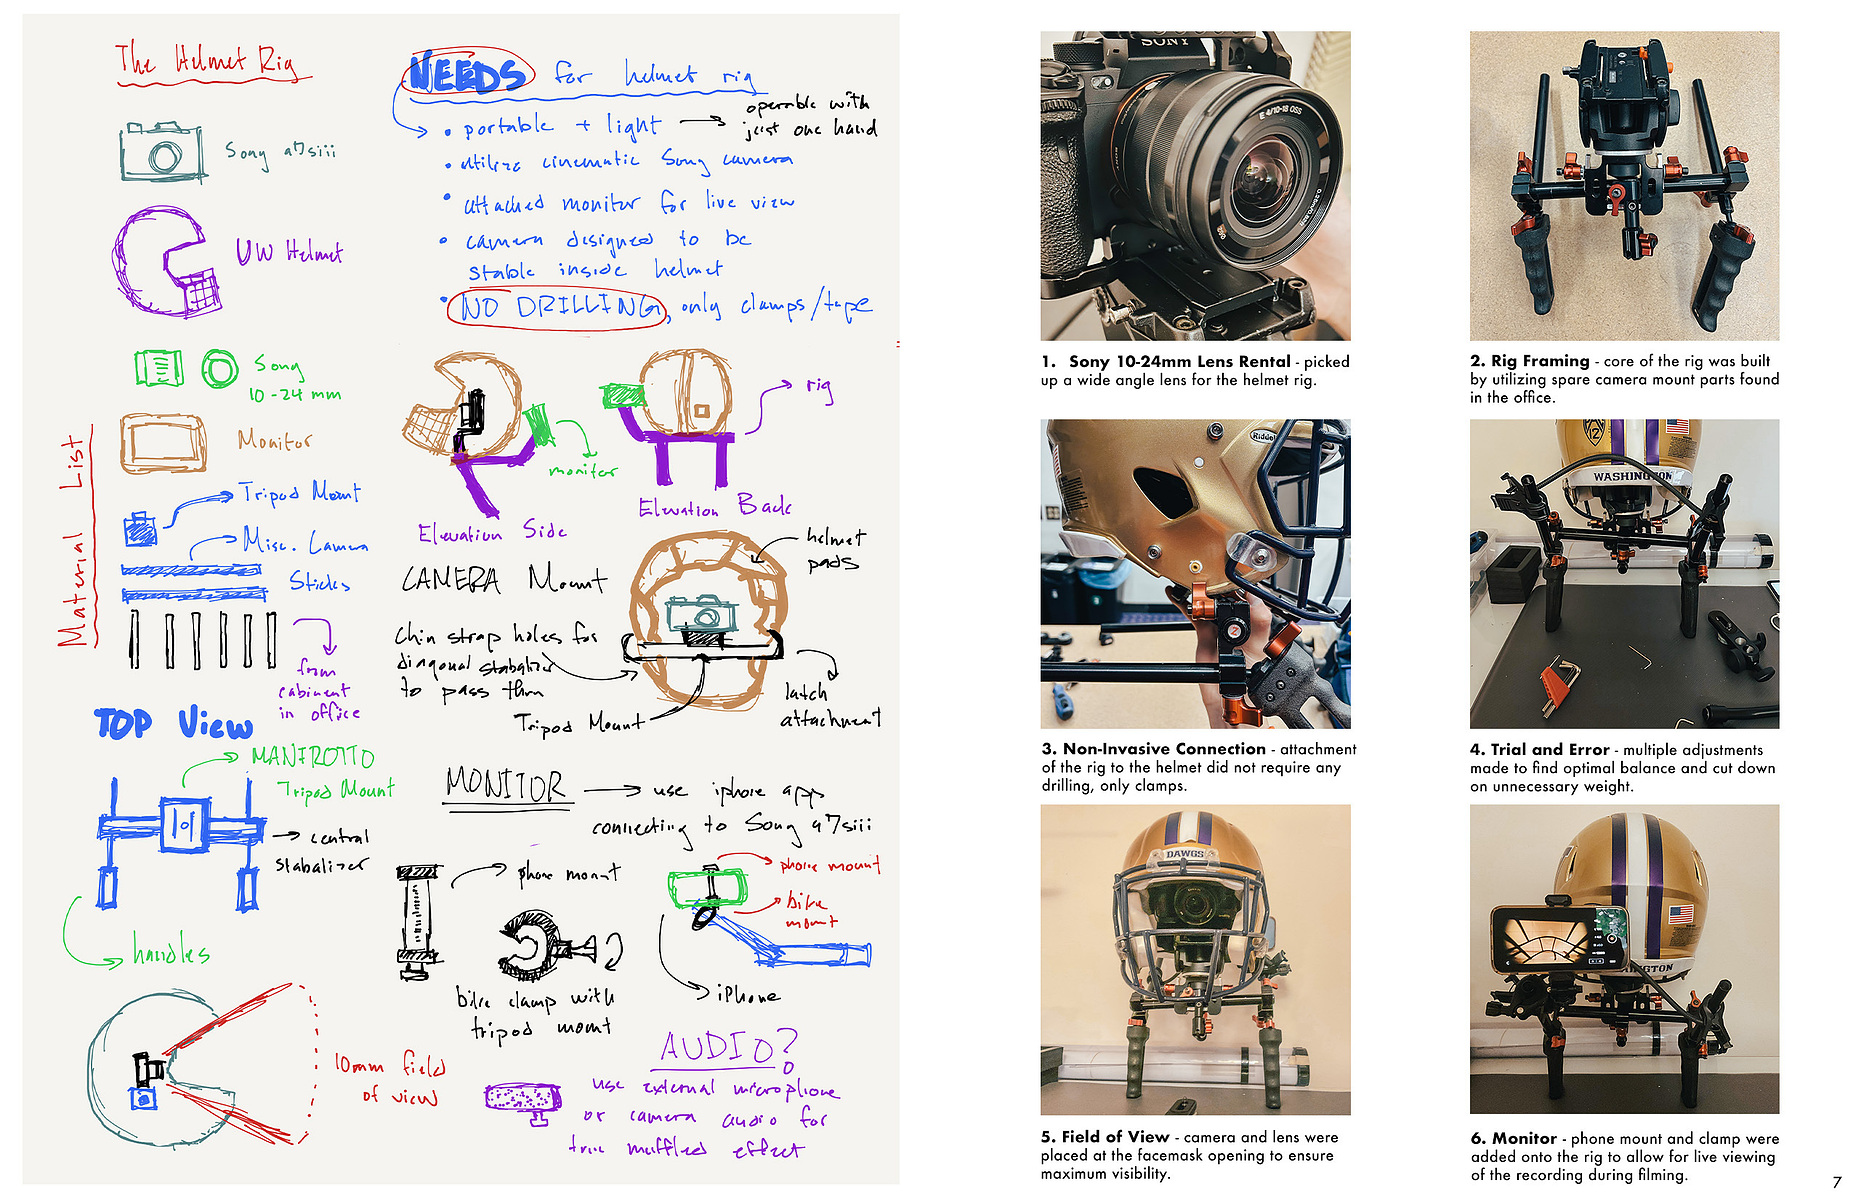 The Helmet Rig
Sony a7siii
UW Helmet
Sony
10-24 mm
Monitor
Material List
Tripod Mount
Misc. Camera
Sticks
from
cabinent
in office
TOP View
MANFROTTO
Tripod Mount
central
stabalizer
handles
10mm field
of view
NEEDS for helmet rig
• portable + light → operable with
just one hand
• utilize cinematic Sony camera
• attached monitor for live view
• camera designed to be
stable inside helmet
• NO DRILLING, only clamps/tape
rig
monitor
Elevation Side
Elevation Back
CAMERA Mount
helmet
pads
Chin strap holes for
diagonal stabalizer
to pass thru
Tripod Mount
latch
attachment
MONITOR → use iphone app
connecting to Sony a7siii
phone mount
phone mount
bike
mount
bike clamp with
tripod mount
iPhone
AUDIO?
use external microphone
or camera audio for
true muffled effect
SONY
E 4/10-18 OSS
1. Sony 10-24mm Lens Rental - picked
up a wide angle lens for the helmet rig.
2. Rig Framing - core of the rig was built
by utilizing spare camera mount parts found
in the office.
Riddell
3. Non-Invasive Connection - attachment
of the rig to the helmet did not require any
drilling, only clamps.
PAC 12
WASHINGTON
4. Trial and Error - multiple adjustments
made to find optimal balance and cut down
on unnecessary weight.
DAWGS
5. Field of View - camera and lens were
placed at the facemask opening to ensure
maximum visibility.
INGTON
6. Monitor - phone mount and clamp were
added onto the rig to allow for live viewing
of the recording during filming.
7